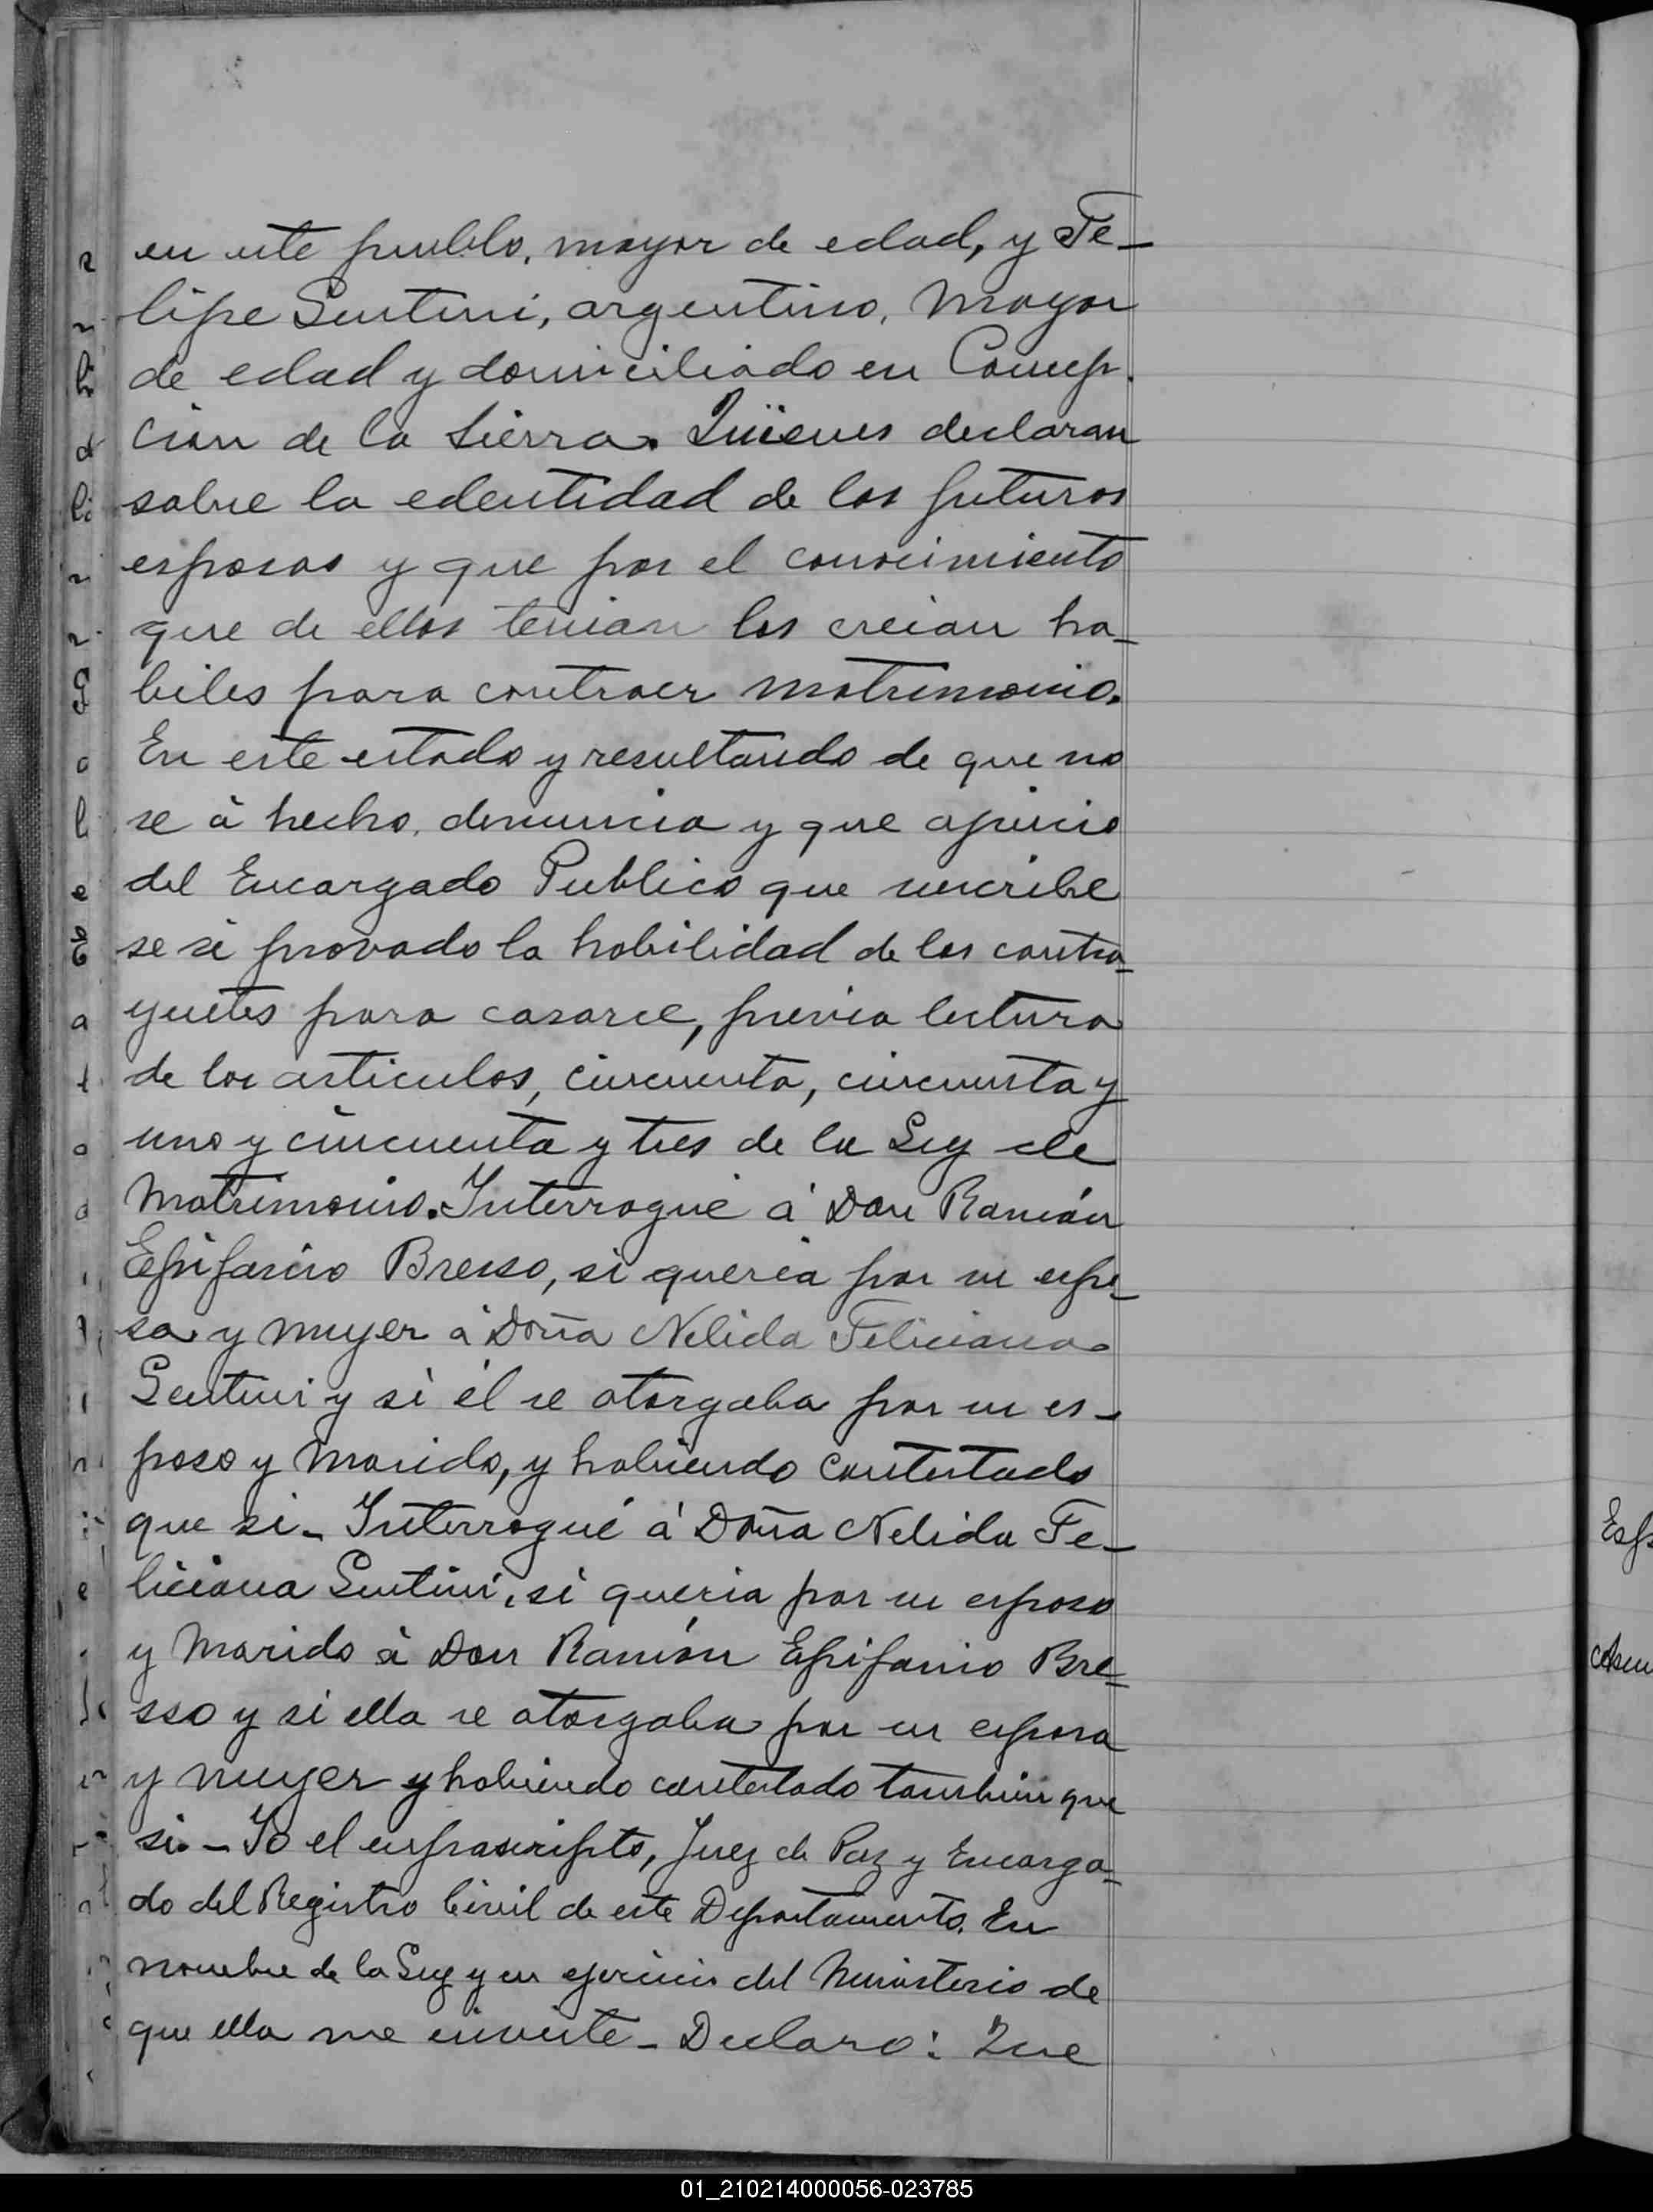 en este pueblo, mayor de edad, y Fe-
lipe Sentini, argentino, mayor
de edad y domiciliado en Concep-
ción de la Sierra. Quienes declaran
sobre la edentidad de los futuros
esposos y que por el conocimiento
que de ellos tenian los creian ha-
biles para contraer matrimonio.
En este estado y resultando de que no
se à hecho, denuncia y que ajuicio
del Encargado Publico que suscribe
se à provado la habilidad de los contra-
yentes para casarce, previa lectura
de los articulos, cincuenta, cincuenta y
uno y cincuenta y tres de la Ley de
Matrimonio. Interrogué á Don Ramón
Epifanio Bresso, si queria por su espo-
sa y muyer á Doña Nelida Feliciana
Sentini y si él se otorgaba por su es-
poso y marido, y habiendo contestado
que si - Interrogué á Doña Nelida Fe-
liciana Sentini, si queria por su esposo
y Marido à Don Ramón Epifanio Bre-
sso y si ella se otorgaba por su esposa
y muyer y habiendo contestado tambien que
si. - Yo el enfrascripto, Juez de Paz y Encarga-
do del Registro Civil de este Departamento. En
nombre de la Ley y en ejercicio del Ministerio de
que ella me inviste - Declaro: Que
01_210214000056-023785